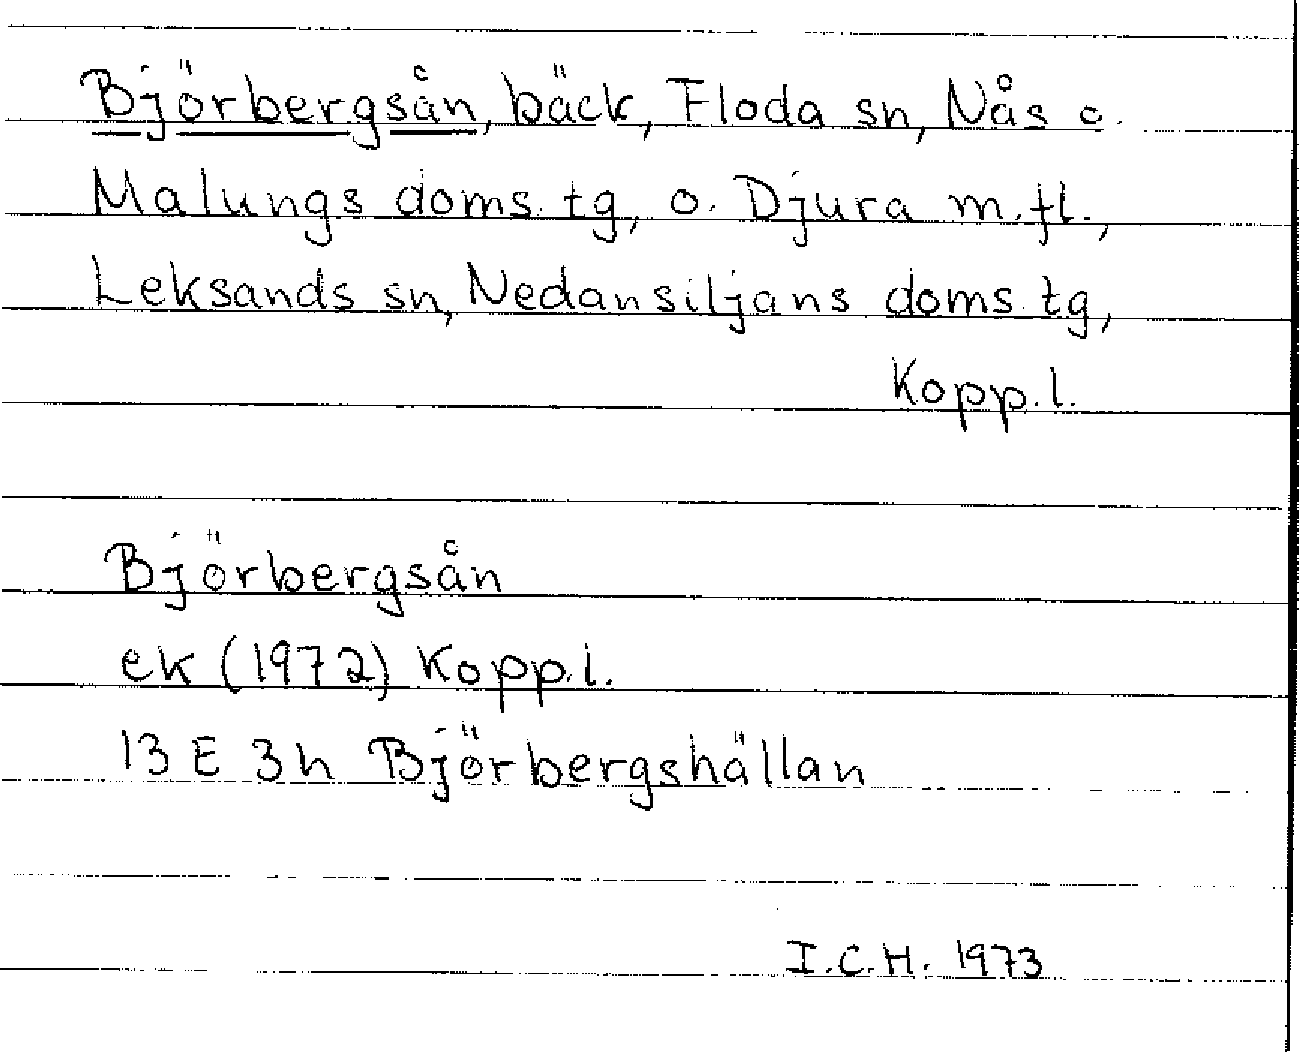 Björbergsån, bäck, Floda sn, Nås o.
Malungs doms. tg, o. Djura m.fl.,
Leksands sn, Nedansiljans doms. tg,
Kopp. l.
Björbergsån
ek (1972) Kopp. l.
13 E 3h Björbergshällan
I.C.H. 1973